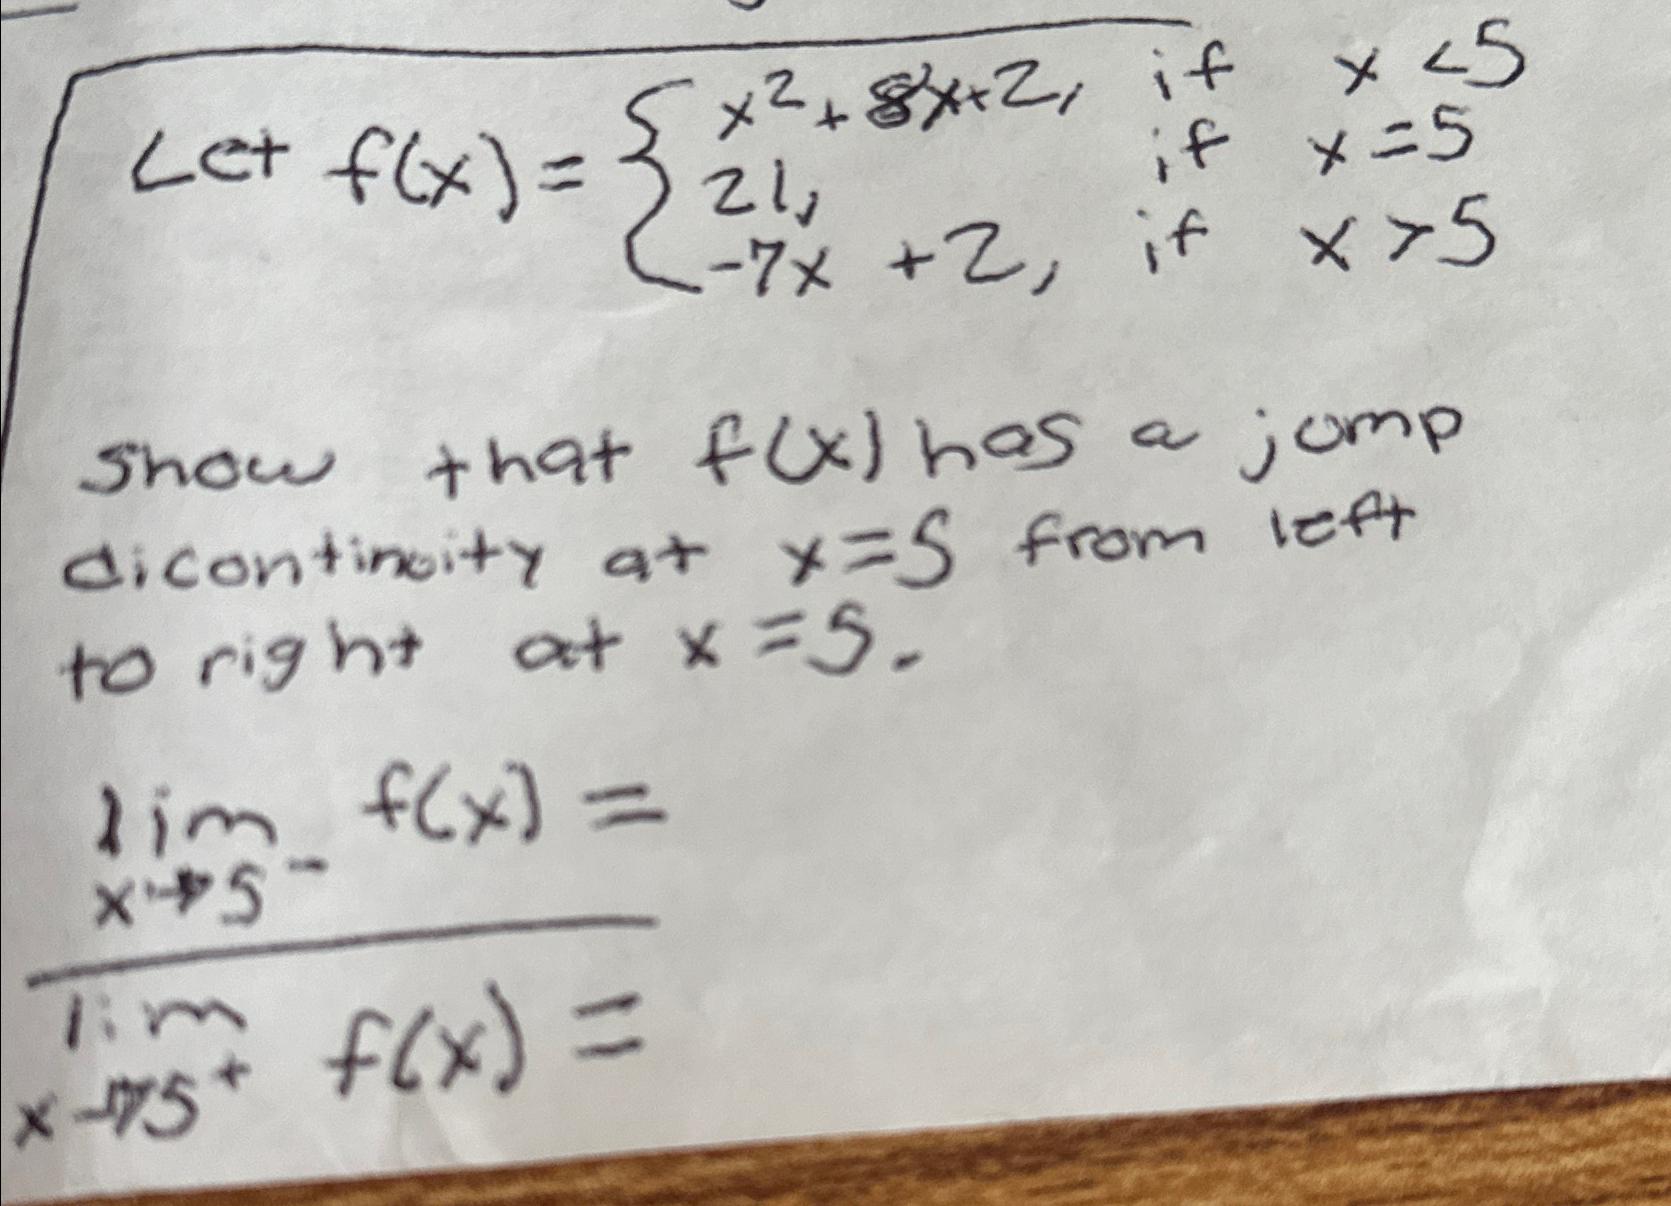 Let f(x) = { x² + 8x+2, if x < 5
21, if x = 5
-7x + 2, if x > 5
show that f(x) has a jump
dicontinuity at x = 5 from left
to right at x = 5.
lim f(x) =
x→5⁻
lim f(x) =
x→5⁺